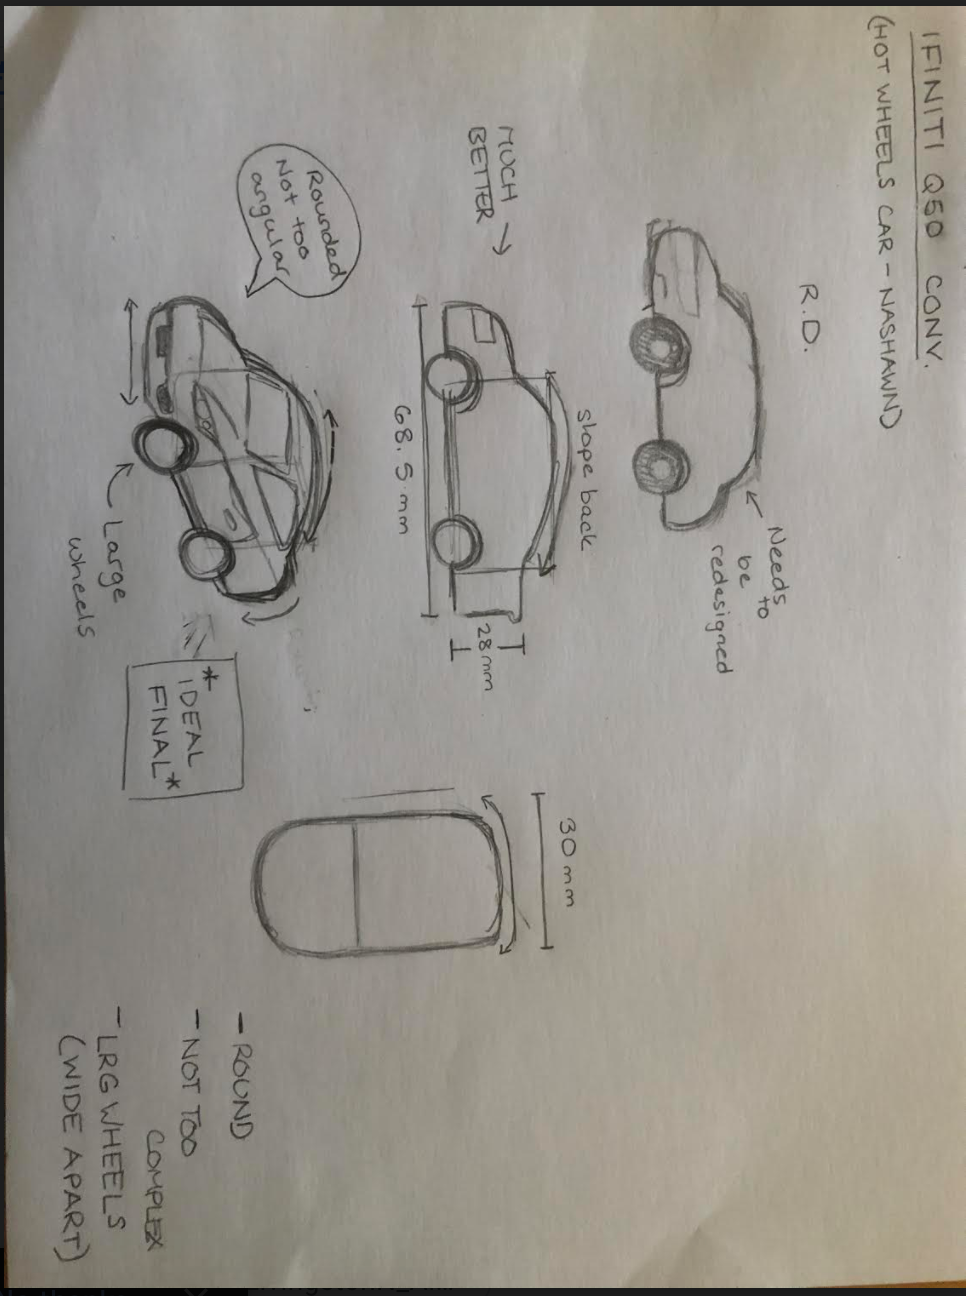 IFINITI Q50 CONV.
(HOT WHEELS CAR - NASHAWN)
R.D.
Needs
to
be
redesigned
MUCH
BETTER
slope back
68.5 mm
28mm
Rounded
Not too
angular
Large
wheels
*
IDEAL
FINAL*
30 mm
- ROUND
- NOT TOO
COMPLEX
- LRG WHEELS
(WIDE APART)